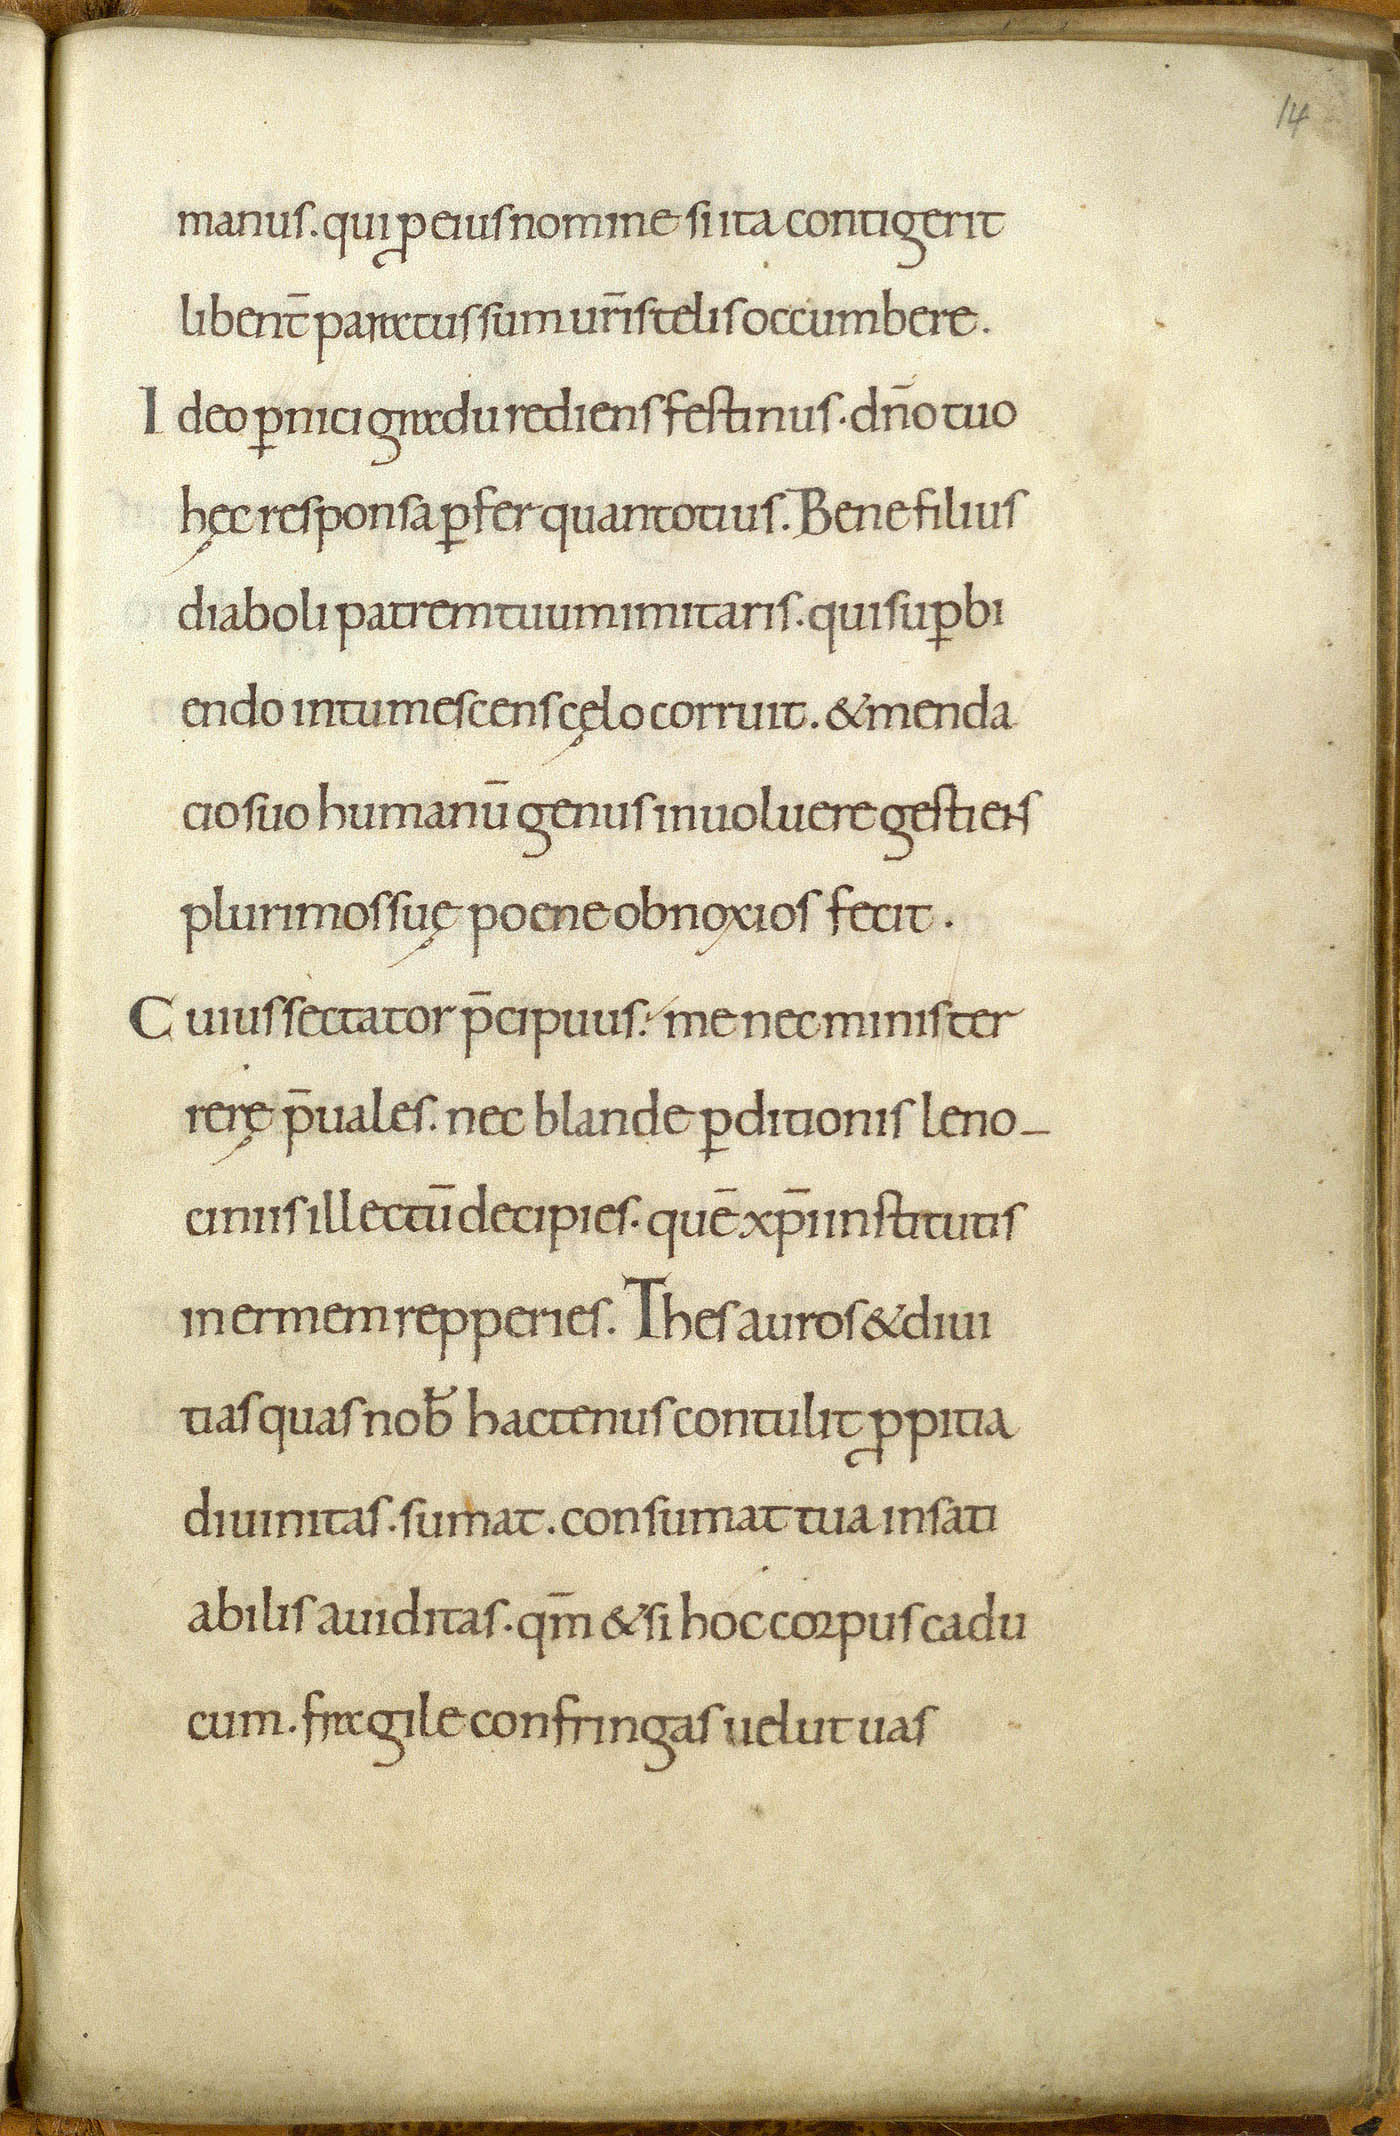 14
manus. qui ꝓ eius nomine si ita contigerit
libent̄ paratus sum ur̄is telis occumbere.
Ideo ꝑnici gradu rediens festinus. dn̄o tuo
hęc responsa ꝑfer quantotius. Bene filius
diaboli patrem tuum imitaris. qui suꝑbi
endo intumescens cęlo corruit. & menda
cio suo humanū genus inuoluere gestiens
plurimos suę poene obnoxios fecit.
Cuius sectator p̄cipuus: me nec minis ter
rerę p̄uales. nec blande ꝑditionis leno-
ciniis illectū decipies. quē xp̄i institutis
inermem repperies. Thesauros & diui
tias quas nob̄ hactenus contulit ꝓpitia
diuinitas. sumat. consumat tua insati
abilis auiditas. qm̄ & si hoc corpus cadu
cum. fragile confringas uelut uas